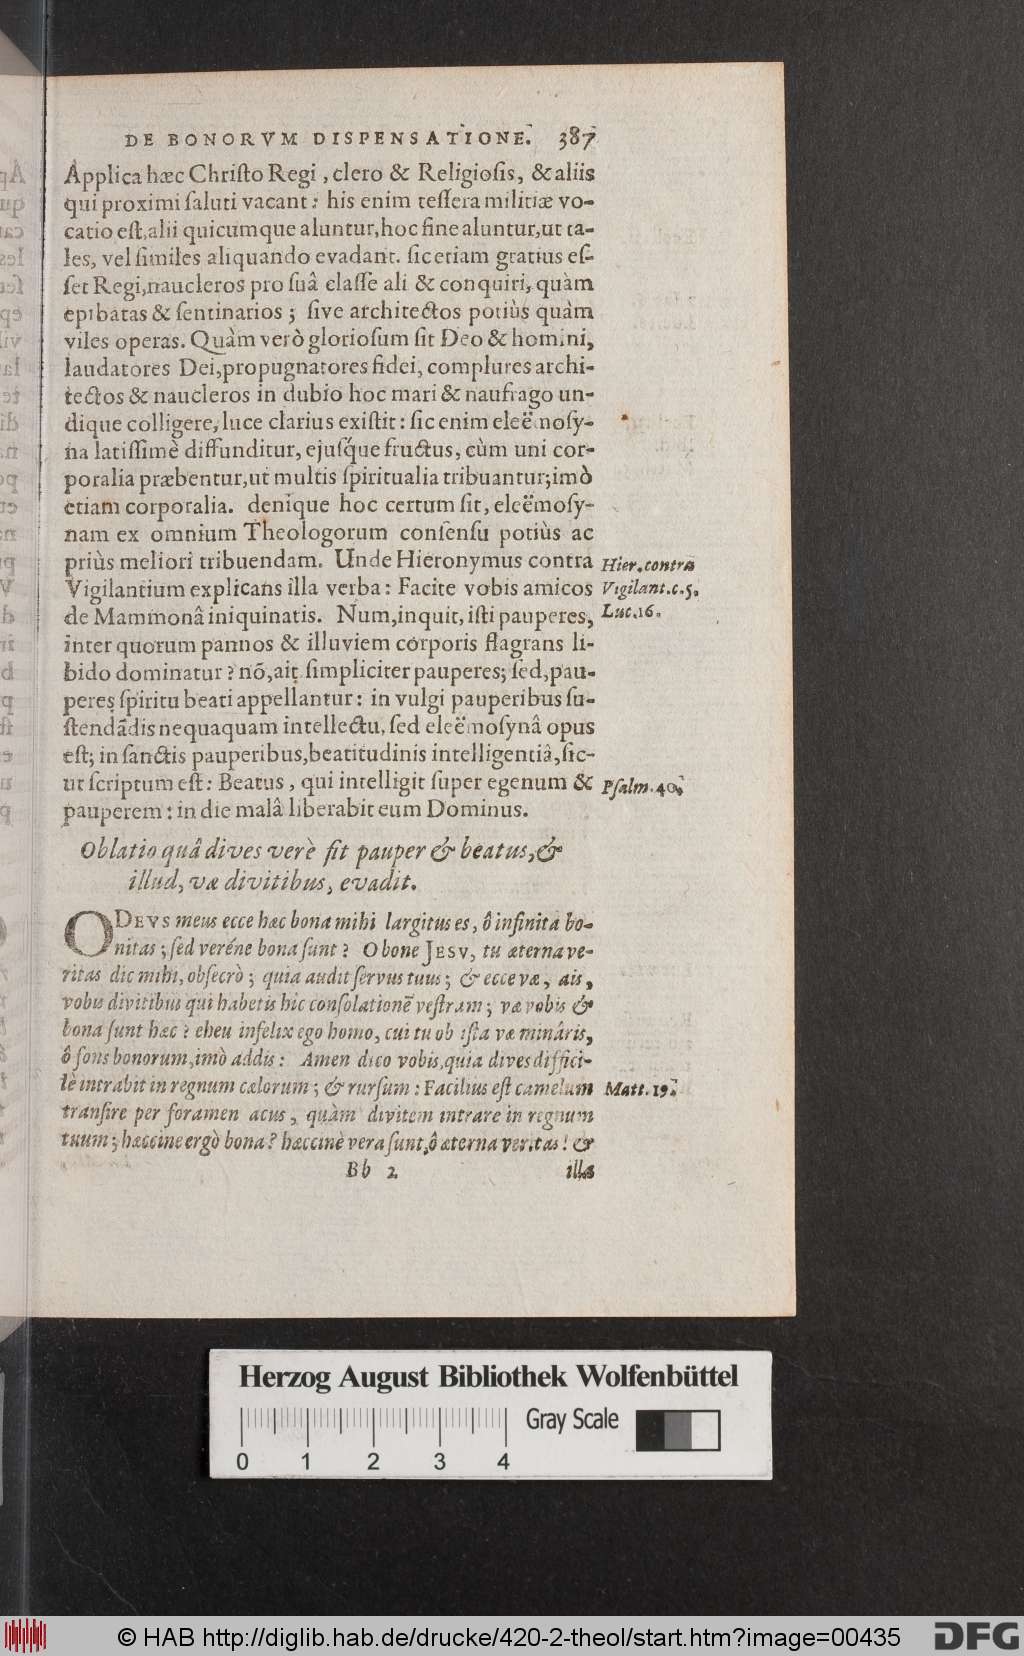 DE BONORVM DISPENSATIONE. 387
Applica hæc Christo Regi, clero & Religiosis, & aliis
qui proximi saluti vacant: his enim tessera militiæ vo-
catio est, alii quicumque aluntur, hoc fine aluntur, ut ta-
les, vel similes aliquando evadant. sic etiam gratius es-
set Regi, naucleros pro suâ classe ali & conquiri, quàm
epibatas & sentinarios; sive architectos potiùs quàm
viles operas. Quàm verò gloriosum sit Deo & homini,
laudatores Dei, propugnatores fidei, complures archi-
tectos & naucleros in dubio hoc mari & naufrago un-
dique colligere, luce clarius existit: sic enim eleëmosy-
na latissimè diffunditur, ejusq́ue fructus, cùm uni cor-
poralia præbentur, ut multis spiritualia tribuantur; imò
etiam corporalia. denique hoc certum sit, eleëmosy-
nam ex omnium Theologorum consensu potiùs ac
priùs meliori tribuendam. Unde Hieronymus contra
Hier. contra
Vigilantium explicans illa verba: Facite vobis amicos
Vigilant. c. 5.
de Mammonâ iniquinatis. Num, inquit, isti pauperes,
Luc. 16.
inter quorum pannos & illuviem corporis flagrans li-
bido dominatur? nõ, ait simpliciter pauperes; sed, pau-
peres spiritu beati appellantur: in vulgi pauperibus su-
stendãdis nequaquam intellectu, sed eleëmosynâ opus
est; in sanctis pauperibus, beatitudinis intelligentiâ, sic-
ut scriptum est: Beatus, qui intelligit super egenum &
Psalm. 40.
pauperem: in die malâ liberabit eum Dominus.
Oblatio quâ dives verè fit pauper & beatus, &
illud, væ divitibus, evadit.
O DEVS meus ecce hæc bona mihi largitus es, ô infinita bo-
nitas; sed veréne bona sunt? O bone JESV, tu æterna ve-
ritas dic mihi, obsecrò; quia audit servus tuus; & ecce væ, ais,
vobis divitibus qui habetis hîc consolationẽ vestram; væ vobis &
bona sunt hæc? eheu infelix ego homo, cui tu ob ista væ mináris,
ô fons bonorum, imò addis: Amen dico vobis, quia dives diffici-
lè intrabit in regnum cælorum; & rursum: Facilius est camelum
Matt. 19.
transire per foramen acus, quàm divitem intrare in regnum
tuum; hæccine ergò bona? hæccinè vera sunt, ô æterna veritas! &
Bb 2 illa
Herzog August Bibliothek Wolfenbüttel
Gray Scale
0 1 2 3 4
© HAB http://diglib.hab.de/drucke/420-2-theol/start.htm?image=00435
DFG